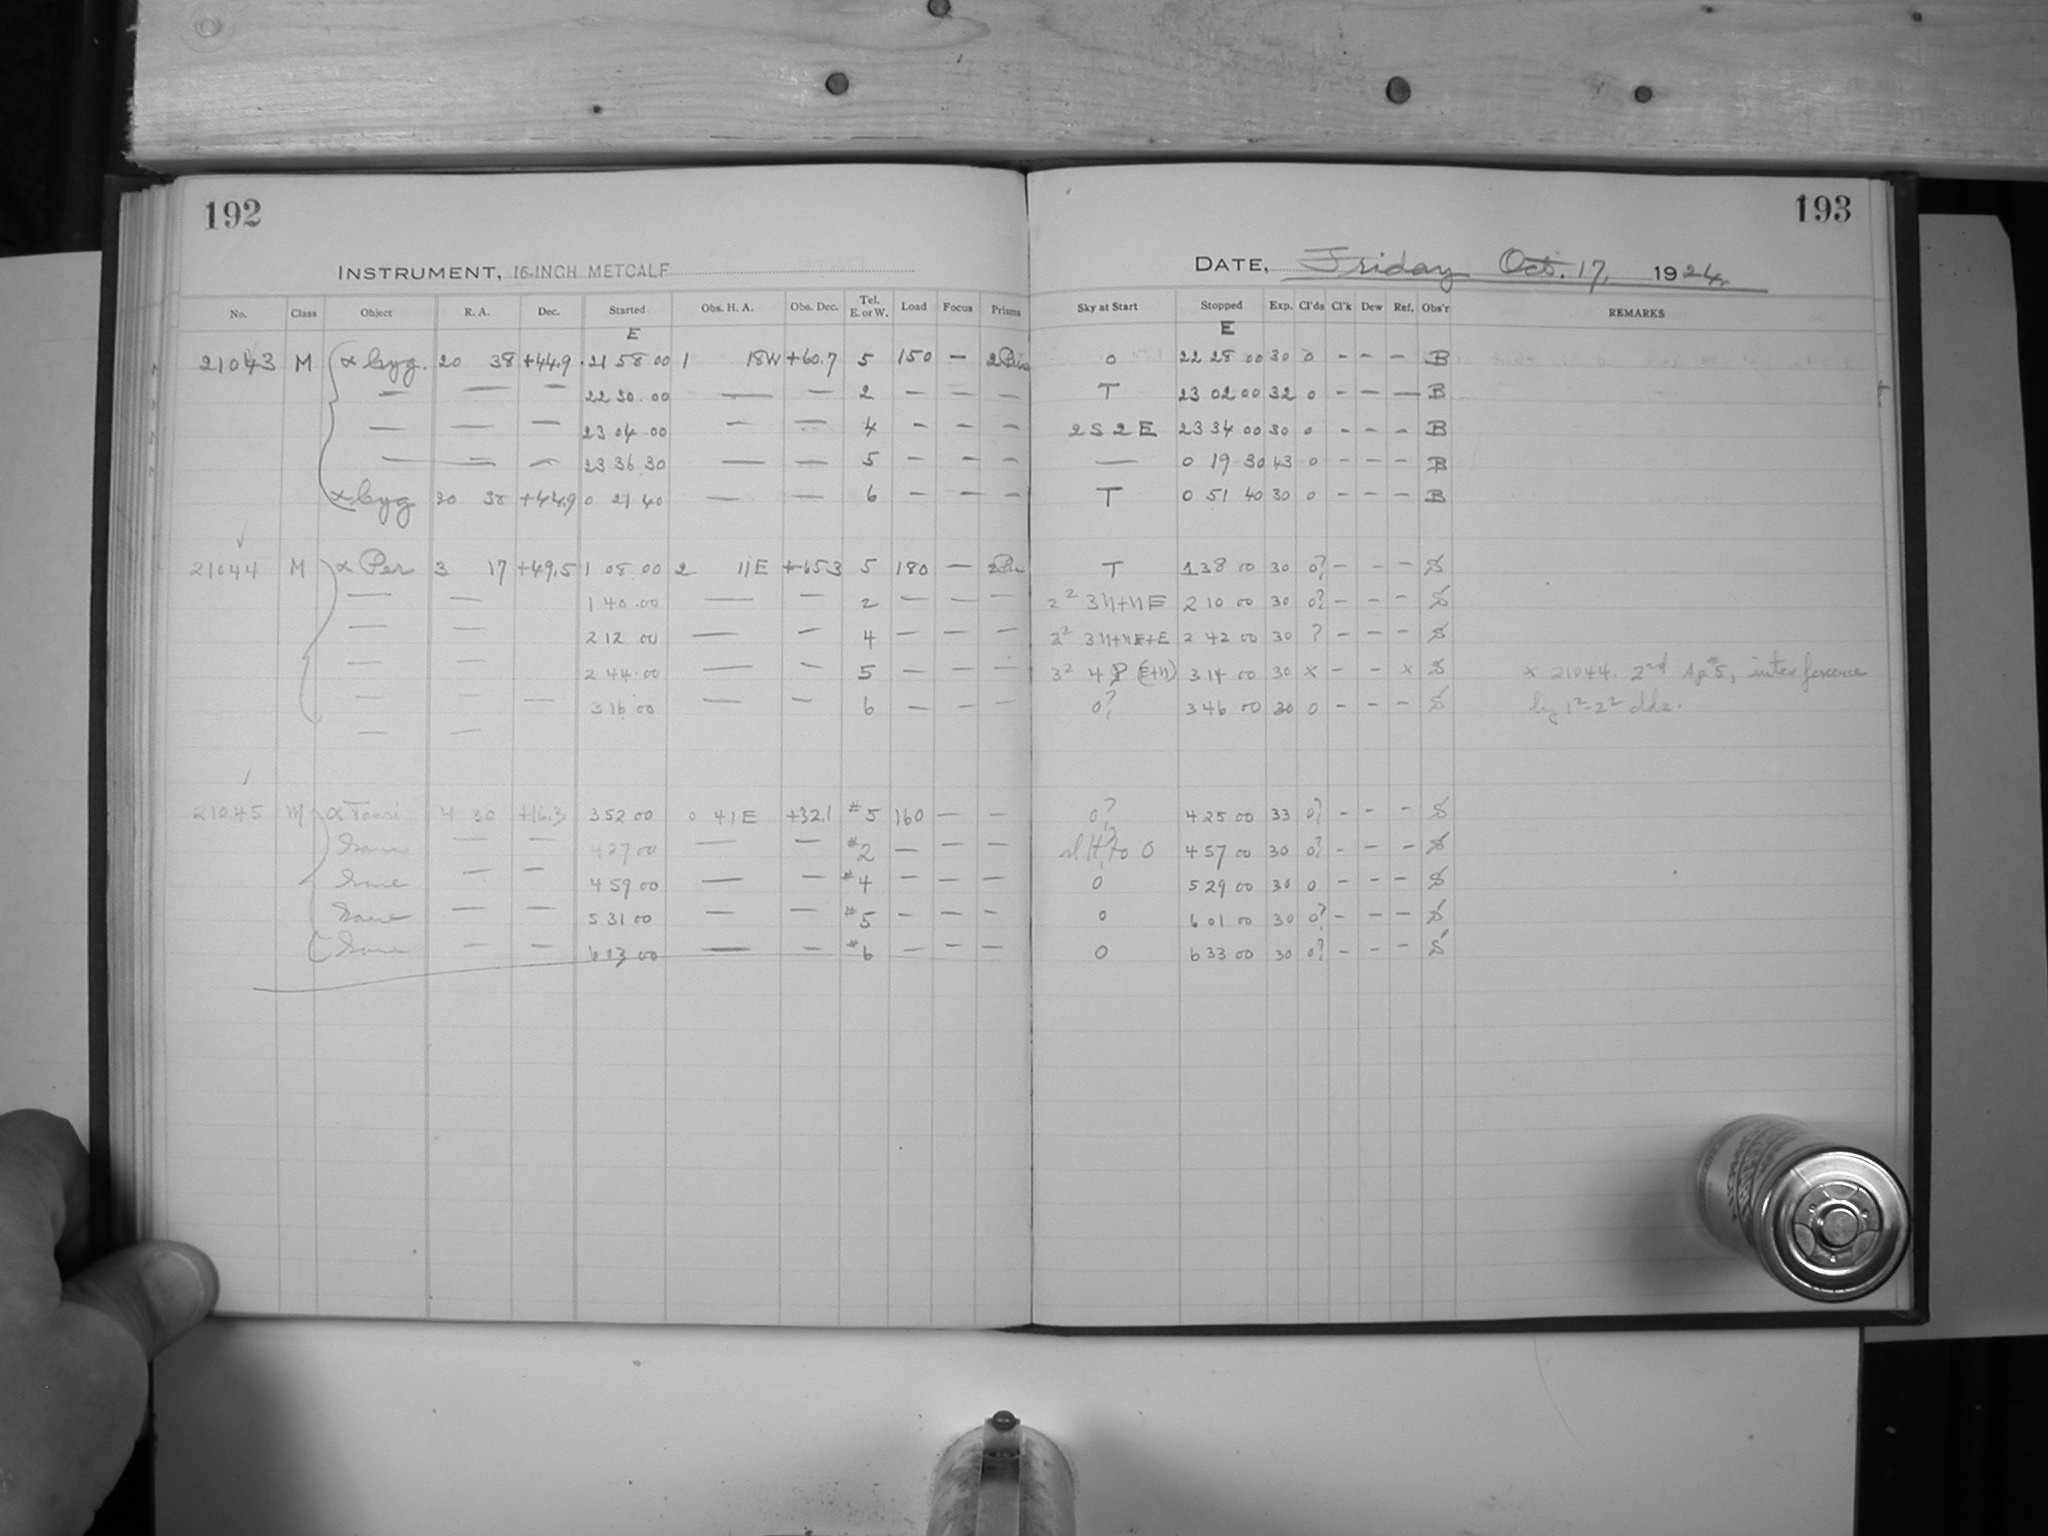 192
193
INSTRUMENT, 16-INCH METCALF
DATE, Friday Oct. 17, 1924
No. Class Object R. A. Dec. Started Obs. H. A. Obs. Dec. Tel. E. or W. Load Focus Prisms Sky at Start Stopped Exp. Cl'ds Cl'k Dew Ref. Obs'r REMARKS
E E
21043 M α Cyg. 20 38 +44.9 21 58 00 1 18W +60.7 5 150 — 2 Pris o 22 28 00 30 o - - - B
— — — 22 30 00 — — 2 — — — T 23 02 00 32 o - - — B
— — — 23 04 00 — — 4 - - - 2 S 2 E 23 34 00 30 o - - - B
— — — 23 36 30 — — 5 - - - — 0 19 30 43 o - - - B
α Cyg 20 38 +44.9 0 21 40 — — 6 - - - T 0 51 40 30 o - - - B
21044 M α Per 3 17 +49.5 1 08 00 2 11E +65.3 5 180 — T 1 38 00 30 o? - - - S
— — 1 40 00 — — 2 — — — 2² 3N+NE 2 10 00 30 o? - - - S
— — 2 12 00 — — 4 — — — 2² 3N+NE+E 2 42 00 30 ? - - - S
— — 2 44 00 — — 5 — — — 3² 4 (E+N) 3 14 00 30 x - - x S x 21044. 2nd Ap #5, interference
— — — 3 16 00 — — 6 - - - o? 3 46 00 30 o - - - S by 1²-2² clds.
— —
21045 M α Tauri 4 30 +16.3 3 52 00 0 41E +32.1 #5 160 — — o? 4 25 00 33 o? - - - S
Same — — 4 27 00 — — #2 — — — sl H? to O 4 57 00 30 o? - - - S
Same — — 4 59 00 — — #4 — — — O 5 29 00 30 o - - - S
Same — — 5 31 00 — — #5 - - - o 6 01 00 30 o? - - - S
Same — — 6 03 00 — — #6 — — — O 6 33 00 30 o? - - - S